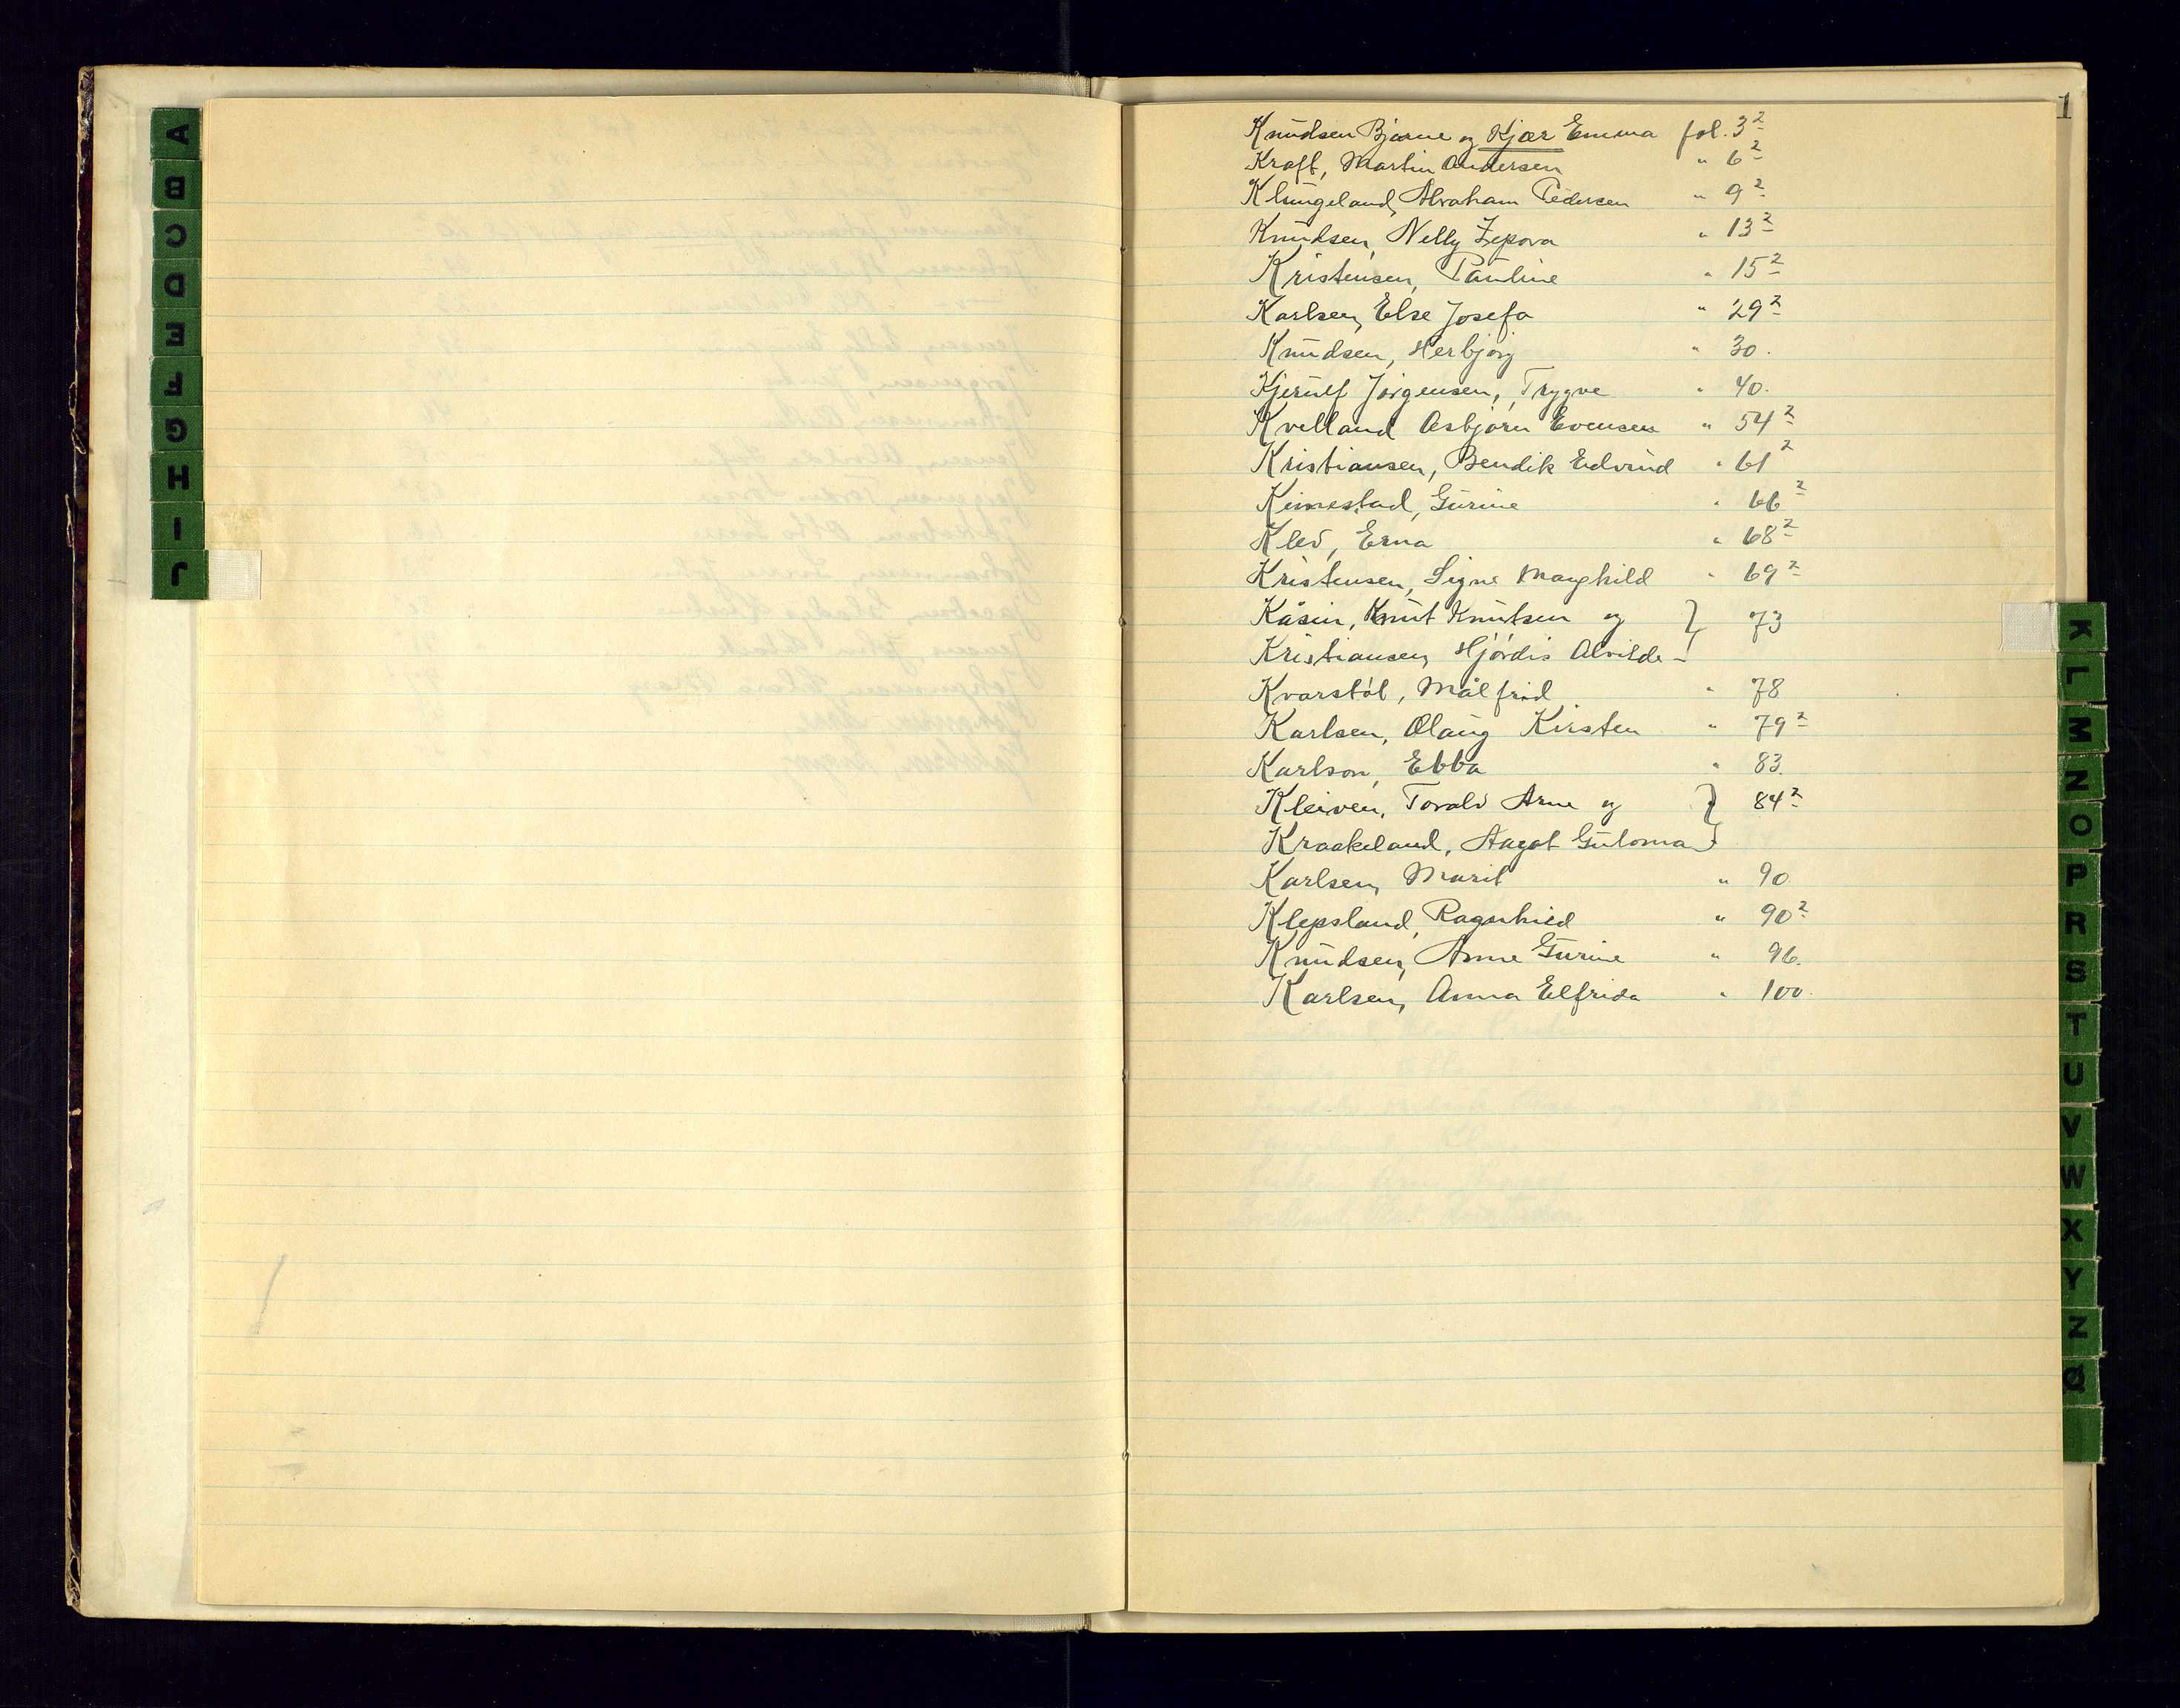 A
B
C
D
E
F
G
H
I
J
1
Knudsen Bjarne og Kjær Emma fol. 3²
Kraft, Martin Andersen " 6²
Klungeland, Abraham Pedersen " 9²
Knudsen, Nelly Zepora " 13²
Kristensen, Pauline " 15²
Karlsen, Else Josefa " 29²
Knudsen, Herbjørg " 30.
Kjerulf Jörgensen, Trygve " 40.
Kvelland Asbjørn Evensen " 54²
Kristiansen, Bendik Edvind " 61²
Kimestad, Gurine " 66²
Klev, Erna " 68²
Kristensen, Signe Marghild " 69²
Kåsin, Knut Knutsen og } 73
Kristiansen, Hjördis Alvilde
Kvarstöl, Målfrid " 78
Karlsen, Olaug Kirsten " 79²
Karlson, Ebba " 83.
Kleiven, Torald Arne og } 84²
Kraakeland, Aagot Guloma
Karlsen, Marit " 90.
Klepsland, Ragnhild " 90²
Knudsen, Anne Gurine " 96.
Karlsen, Anna Elfrida " 100.
K
L
M
N
O
P
R
S
T
U
V
W
X
Y
Z
Ø